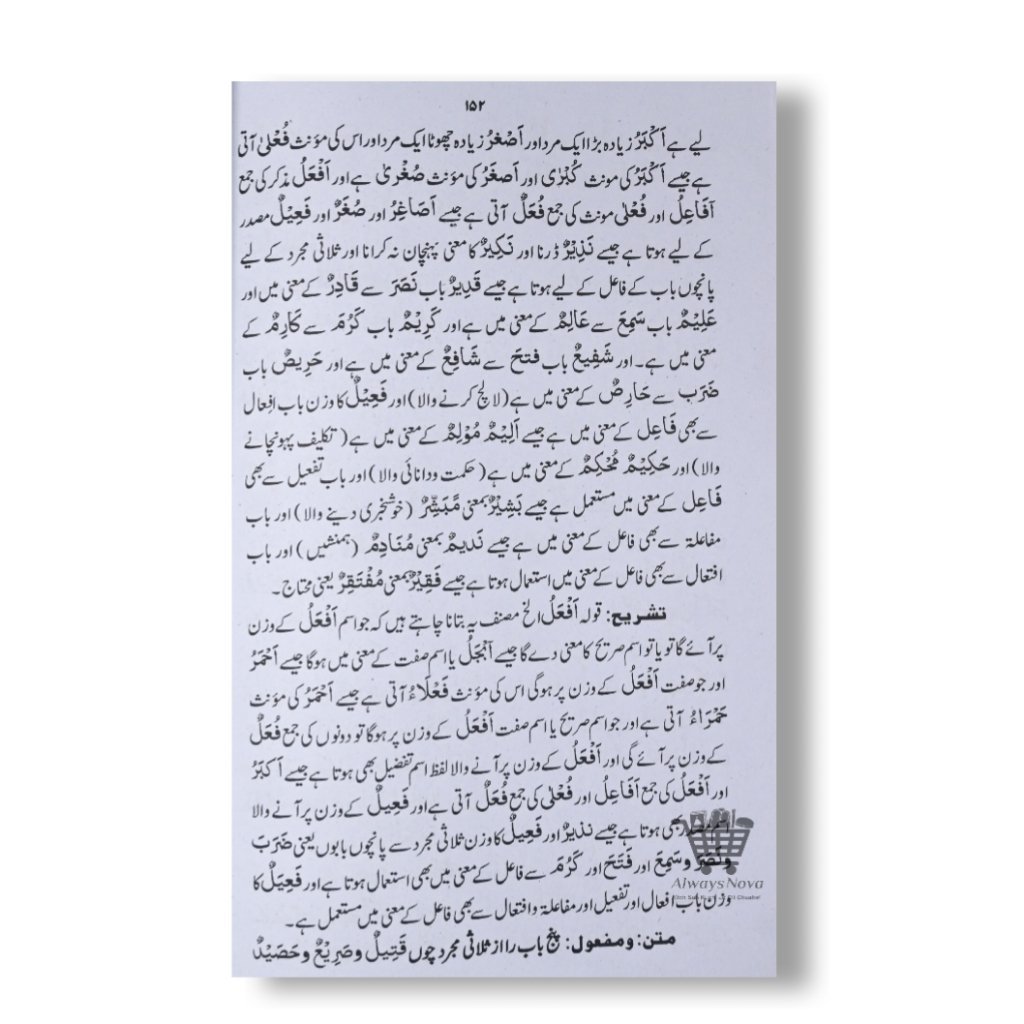 ۱۵۲
لیے ہے اَکْبَرُ زیادہ بڑا ایک مرد اور اَصْغَرُ زیادہ چھوٹا ایک مرد اور اس کی مؤنث فُعْلیٰ آتی
ہے جیسے اَکْبَرُ کی مونث کُبْرٰی اور اَصغَرُ کی مؤنث صُغْریٰ ہے اور اَفْعَلُ مذکر کی جمع
اَفَاعِلُ اور فُعْلٰی مونث کی جمع فُعَلٌ آتی ہے جیسے اَصَاغِرُ اور صُغَرٌ اور فَعِیْلٌ مصدر
کے لیے ہوتا ہے جیسے نَذِیْرٌ ڈرنا اور نَکِیرٌ کا معنی پہچان نہ کرانا اور ثلاثی مجرد کے لیے
پانچوں باب کے فاعل کے لیے ہوتا ہے جیسے قَدِیرٌ باب نَصَرَ سے قَادِرٌ کے معنی میں اور
عَلِیْمٌ باب سَمِعَ سے عَالِمٌ کے معنی میں ہے اور کَرِیْمٌ باب کَرُمَ سے کَارِمٌ کے
معنی میں ہے۔ اور شَفِیعٌ باب فتحَ سے شَافِعٌ کے معنی میں ہے اور حَرِیصٌ باب
ضَرَب سے حَارِصٌ کے معنی میں ہے (لالچ کرنے والا) اور فَعِیْلٌ کا وزن باب اِفعال
سے بھی فَاعِل کے معنی میں ہے جیسے اَلِیْمٌ مُوْلِمٌ کے معنی میں ہے (تکلیف پہونچانے
والا) اور حَکِیْمٌ مُحْکِمٌ کے معنی میں ہے (حکمت ودانائی والا) اور باب تفعیل سے بھی
فَاعِل کے معنی میں مستعمل ہے جیسے بَشِیْرٌ بمعنی مُّبَشِّرٌ (خوشخبری دینے والا) اور باب
مفاعلۃ سے بھی فاعل کے معنی میں ہے جیسے نَدیمٌ بمعنی مُنَادِمٌ (ہمنشیں) اور باب
افتعال سے بھی فاعل کے معنی میں استعمال ہوتا ہے جیسے فَقِیْرٌ بمعنی مُفْتَقِرٌ یعنی محتاج۔
تشریح: قولہ اَفْعَلُ الخ مصنف یہ بتانا چاہتے ہیں کہ جو اسم اَفْعَلُ کے وزن
پر آئے گا تو یا تو اسم صریح کا معنی دے گا جیسے اَبْجَلُ یا اسم صفت کے معنی میں ہوگا جیسے اَحْمَرُ
اور جو صفت اَفْعَلُ کے وزن پر ہوگی اس کی مؤنث فَعْلَاءُ آتی ہے جیسے اَحْمَرُ کی مؤنث
حَمْرَاءُ آتی ہے اور جو اسم صریح یا اسم صفت اَفْعَلُ کے وزن پر ہوگا تو دونوں کی جمع فُعَلٌ
کے وزن پر آئے گی اور اَفْعَلُ کے وزن پر آنے والا لفظ اسم تفضیل بھی ہوتا ہے جیسے اَکبَرُ
اور اَفْعَلُ کی جمع اَفَاعِلُ اور فُعْلٰی کی جمع فُعَلٌ آتی ہے اور فَعِیلٌ کے وزن پر آنے والا
بھی ہوتا ہے جیسے نذیرٌ اور فَعِیلٌ کا وزن ثلاثی مجرد سے پانچوں بابوں یعنی ضَرَبَ
ونَصَرَ وسَمِعَ اور فَتَحَ اور کَرُمَ سے فاعل کے معنی میں بھی استعمال ہوتا ہے اور فَعِیَلٌ کا
وزن باب افعال اور تفعیل اور مفاعلۃ وافتعال سے بھی فاعل کے معنی میں مستعمل ہے۔
متن: ومفعول: پنج باب را از ثلاثی مجرد چوں قَتِیلٌ وصَرِیْعٌ وحَصَیْدٌ
AlwaysNova